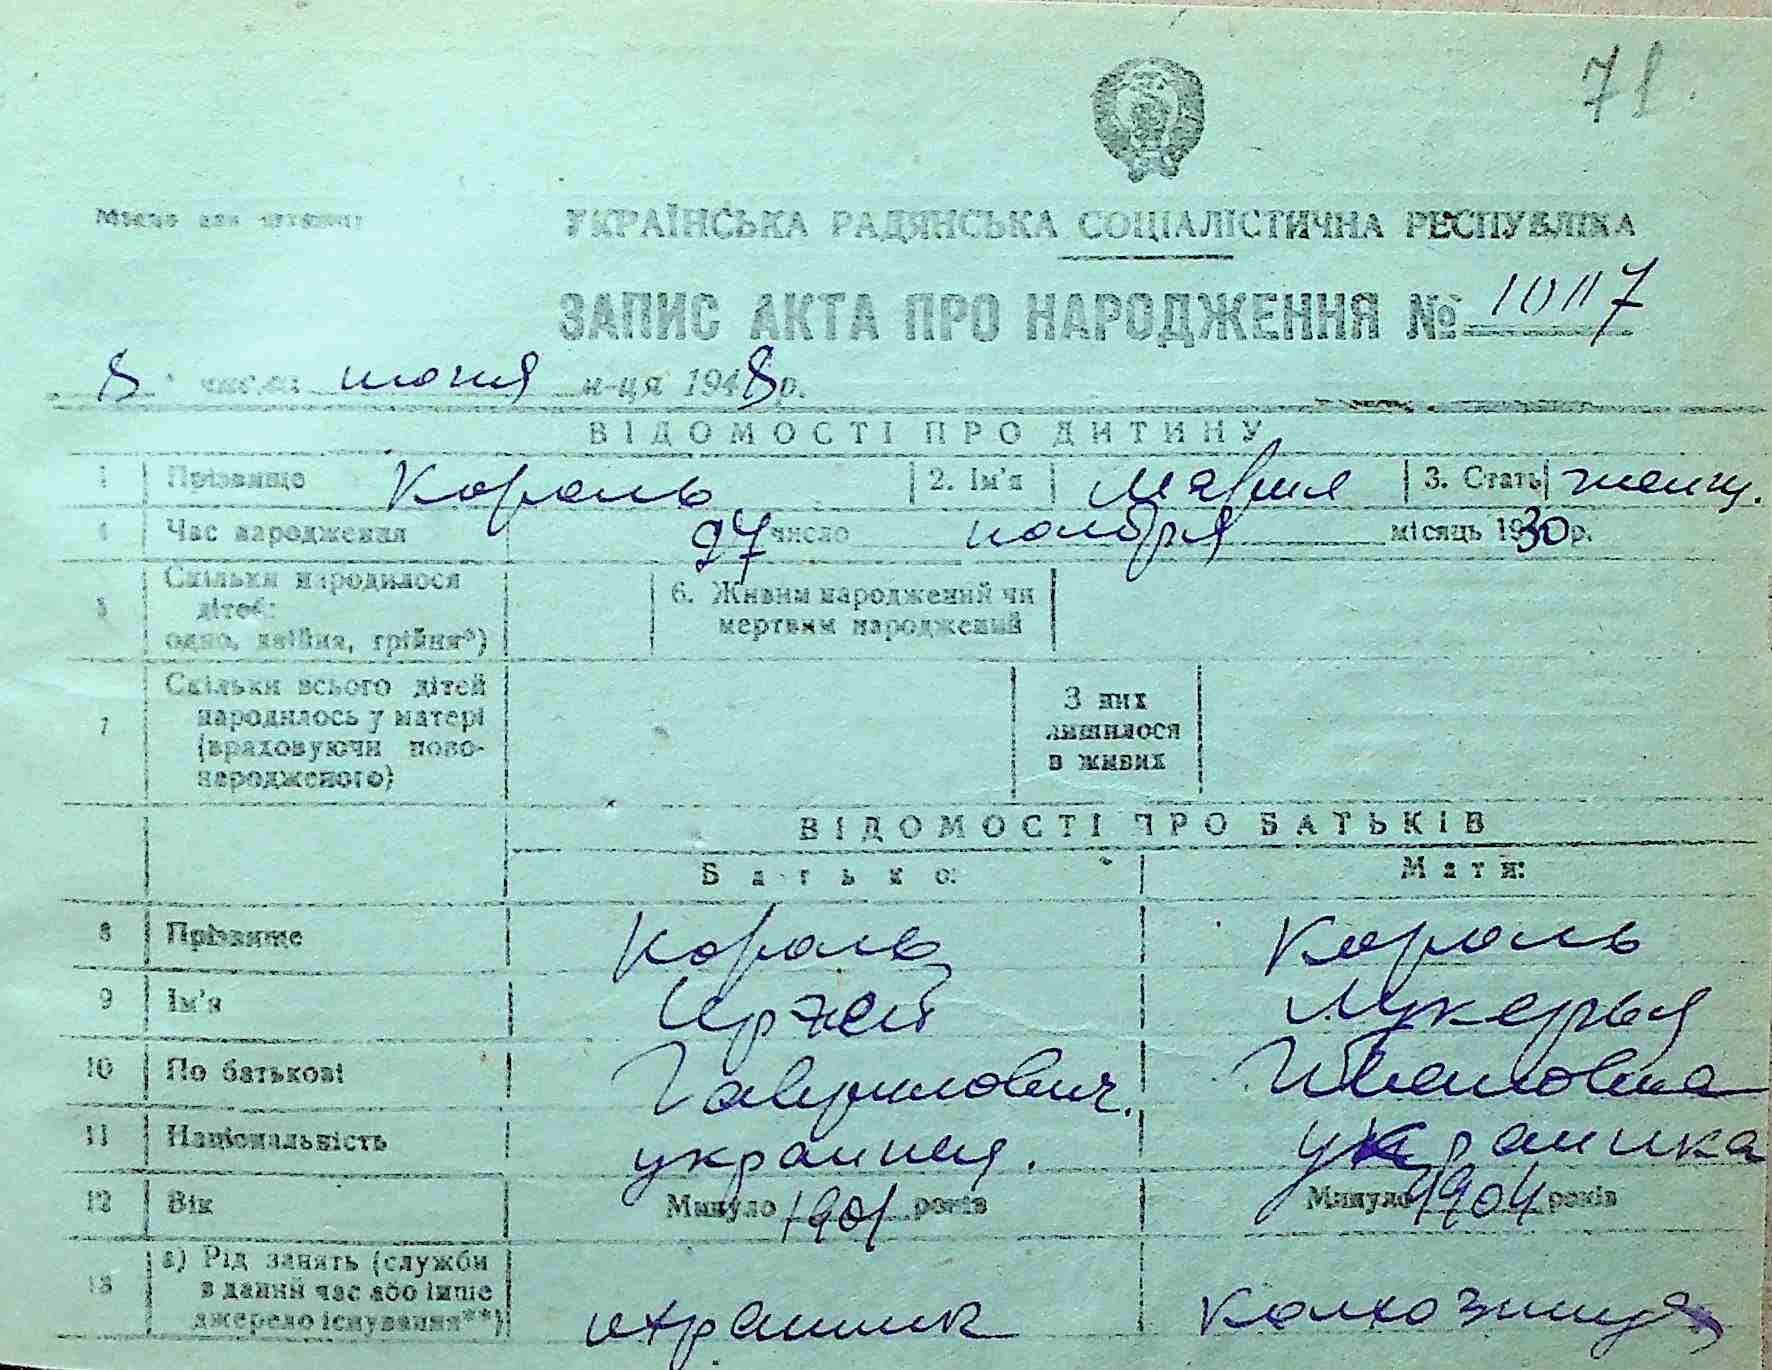 71
Місце для штампу
УКРАЇНСЬКА РАДЯНСЬКА СОЦІАЛІСТИЧНА РЕСПУБЛІКА
ЗАПИС АКТА ПРО НАРОДЖЕННЯ № 10117
8 числа июня м-ця 1948 р.
ВІДОМОСТІ ПРО ДИТИНУ
1 Прізвище Король 2. Ім'я Мария 3. Стать женщ.
4 Час народження 27 число ноября місяць 1930 р.
5 Скільки народилося дітей: одно, двійня, трійня*) 6. Живим народжений чи мертвим народжений
7 Скільки всього дітей народилось у матері (враховуючи новонародженого) З них лишилося в живих
ВІДОМОСТІ ПРО БАТЬКІВ
Батько: Мати:
8 Прізвище Король Король
9 Ім'я Лукерья
10 По батькові Гаврилович. Ивановна
11 Національність украинец. украинка
12 Вік Минуло 1901 років Минуло 1904 років
13 а) Рід занять (служби в даний час або інше джерело існування**) охранник колхозница